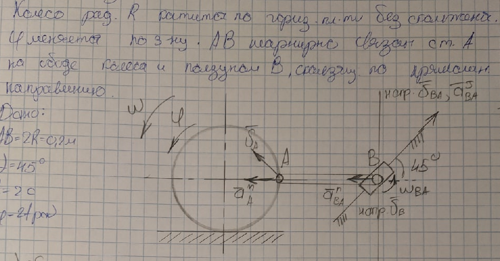 Колесо рад. R катится по гориз. пл-ти без скольжения.
φ меняется по з-ну. AB шарнирно связан с т. A
на ободе колеса и ползуном B, скользящ. по прямолин.
направлению.
Дано:
AB=2R=0,2м
=45°
напр. ῡBA, a̅BA
ω
φ
ῡA
A
a̅ⁿA
a̅ⁿBA
B
45°
ωBA
напр. ῡB